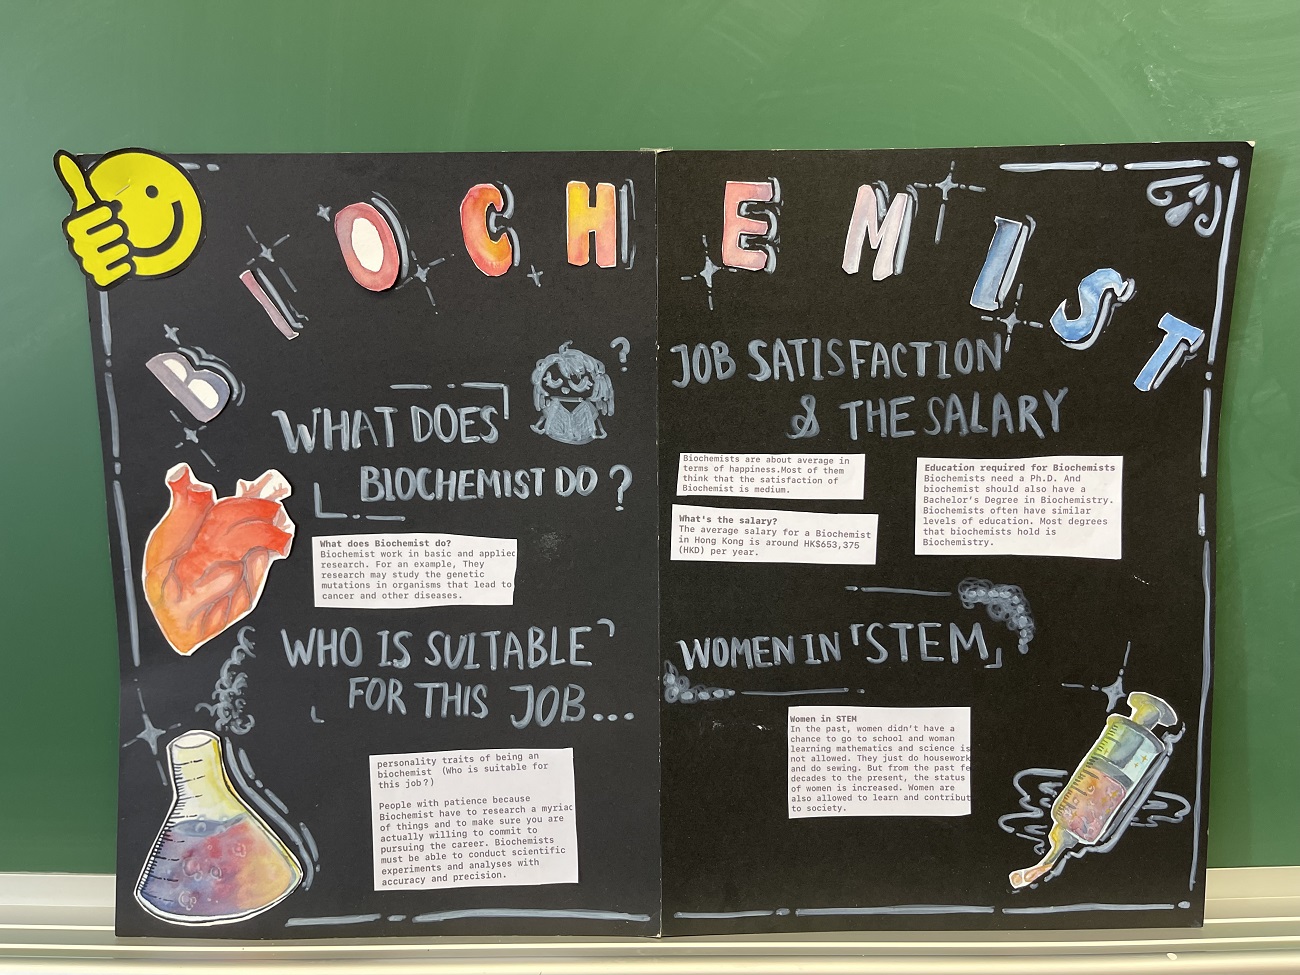 BIOCHEMIST
WHAT DOES
BIOCHEMIST DO ?
What does Biochemist do?
Biochemist work in basic and applied
research. For an example, They
research may study the genetic
mutations in organisms that lead to
cancer and other diseases.
WHO IS SUITABLE
FOR THIS JOB...
personality traits of being an
biochemist (Who is suitable for
this job?)
People with patience because
Biochemist have to research a myriad
of things and to make sure you are
actually willing to commit to
pursuing the career. Biochemists
must be able to conduct scientific
experiments and analyses with
accuracy and precision.
JOB SATISFACTION
& THE SALARY
Biochemists are about average in
terms of happiness.Most of them
think that the satisfaction of
Biochemist is medium.
What's the salary?
The average salary for a Biochemist
in Hong Kong is around HK$653,375
(HKD) per year.
Education required for Biochemists
Biochemists need a Ph.D. And
biochemist should also have a
Bachelor's Degree in Biochemistry.
Biochemists often have similar
levels of education. Most degrees
that biochemists hold is
Biochemistry.
WOMEN IN「STEM」
Women in STEM
In the past, women didn't have a
chance to go to school and woman
learning mathematics and science is
not allowed. They just do housework
and do sewing. But from the past fe
decades to the present, the status
of women is increased. Women are
also allowed to learn and contribut
to society.